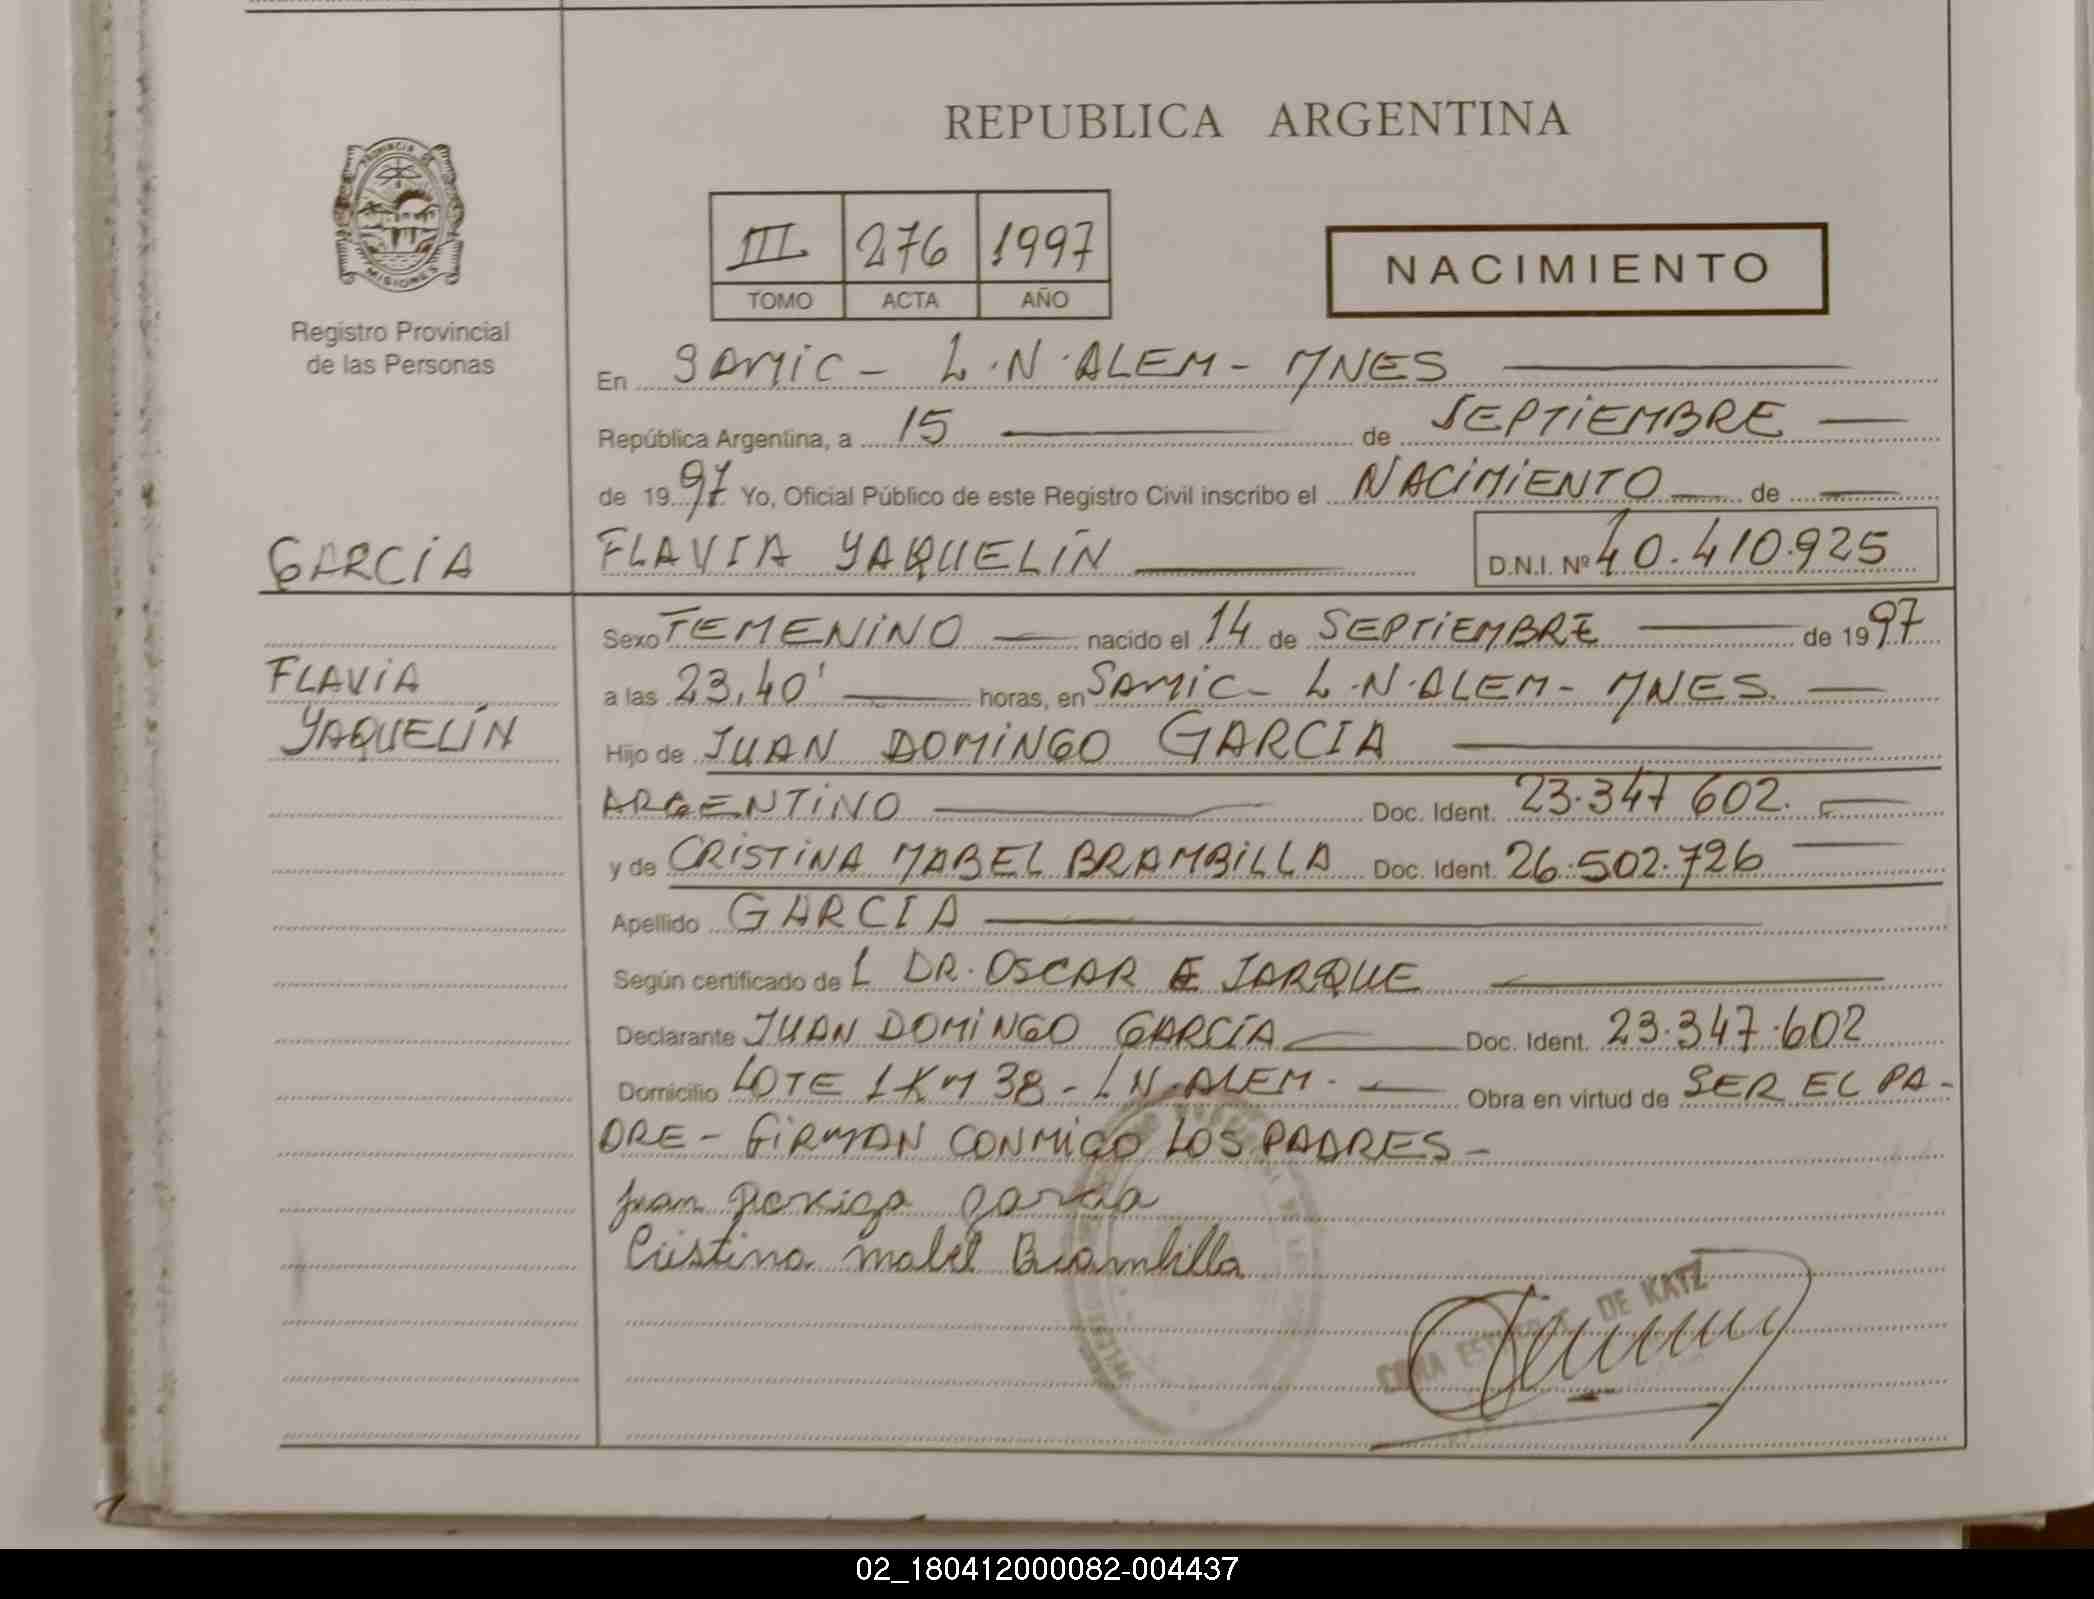 REPUBLICA ARGENTINA
PROVINCIA DE
MISIONES
Registro Provincial
de las Personas
III 276 1997
TOMO ACTA AÑO
NACIMIENTO
En SAMIC - L.N.ALEM - MNES
República Argentina, a 15 de SEPTiEMBRE
de 1997 Yo, Oficial Público de este Registro Civil inscribo el NACiMiENTO de
GARCíA
FLAVIA YAQUELíN D.N.I. Nº 40.410.925
Sexo FEMENiNO nacido el 14 de SEPTiEMBRE de 1997
FLAViA
YAQUELíN
a las 23,40' horas, en SAMiC - L.N.ALEM - MNES.
Hijo de JUAN DOMiNGO GARCIA
ARGENTiNO Doc. Ident. 23.347 602.
y de CRiSTiNA MABEL BRAMBiLLA Doc. Ident. 26.502.726
Apellido GARCIA
Según certificado de L DR. OSCAR E JARQUE
Declarante JUAN DOMiNGO GARCíA Doc. Ident. 23.347.602
Domicilio LOTE 1 KM 38 - L N.ALEM. Obra en virtud de SER EL PA-
DRE - FiRMAN CONMiGO LOS PADRES -
Juan garcia
Cristina mabel Brambilla
DE KATZ
02_180412000082-004437